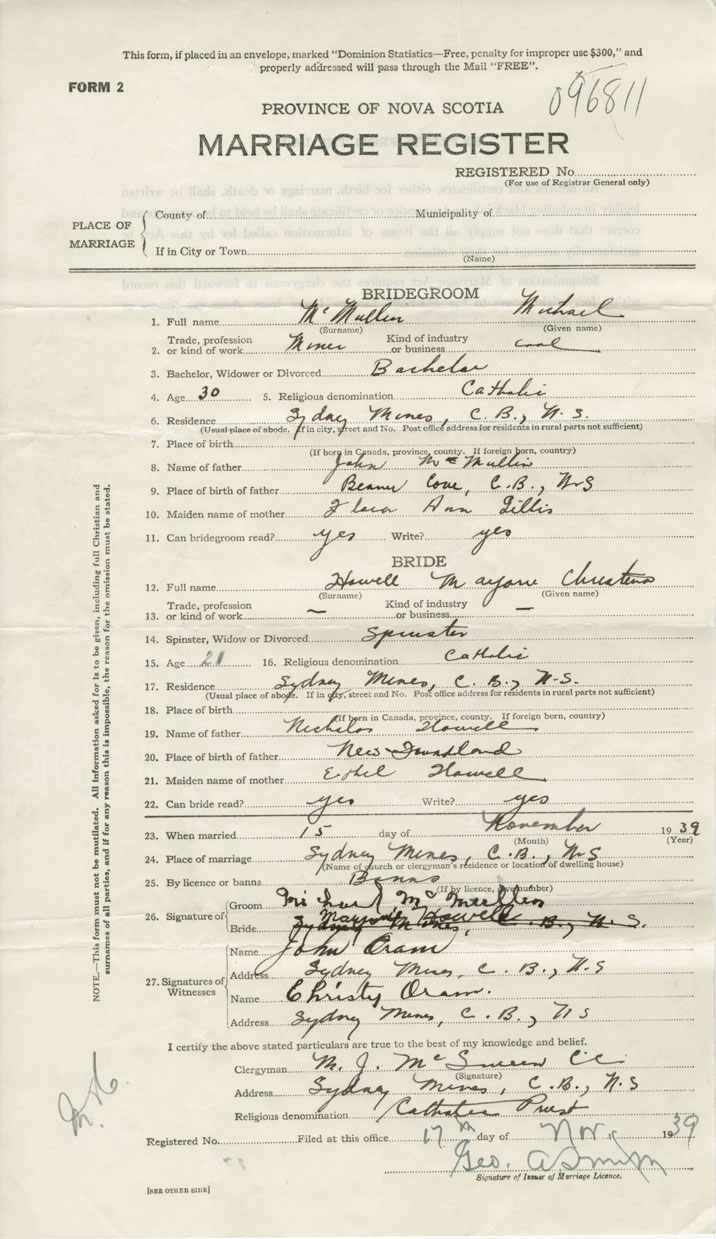 This form, if placed in an envelope, marked "Dominion Statistics—Free, penalty for improper use $300," and
properly addressed will pass through the Mail "FREE".
FORM 2
096811
PROVINCE OF NOVA SCOTIA
MARRIAGE REGISTER
REGISTERED No.
(For use of Registrar General only)
PLACE OF MARRIAGE
County of Municipality of
If in City or Town
(Name)
BRIDEGROOM
1. Full name Mc Mullin Michael
(Surname) (Given name)
2. Trade, profession or kind of work Miner Kind of industry or business coal
3. Bachelor, Widower or Divorced Bachelor
4. Age 30 5. Religious denomination Catholic
6. Residence Sydney Mines, C. B., N. S.
(Usual place of abode. If in city, street and No. Post office address for residents in rural parts not sufficient)
7. Place of birth
(If born in Canada, province, county. If foreign born, country)
8. Name of father John Mc Mullin
9. Place of birth of father Beaver Cove, C. B., N.S
10. Maiden name of mother Flora Ann Gillis
11. Can bridegroom read? yes Write? yes
BRIDE
12. Full name Howell Marjorie Christena
(Surname) (Given name)
13. Trade, profession or kind of work — Kind of industry or business —
14. Spinster, Widow or Divorced Spinster
15. Age 21 16. Religious denomination Catholic
17. Residence Sydney Mines, C. B., N.S.
(Usual place of abode. If in city, street and No. Post office address for residents in rural parts not sufficient)
18. Place of birth
(If born in Canada, province, county. If foreign born, country)
19. Name of father Nicholas Howell
20. Place of birth of father New Foundland
21. Maiden name of mother Ethel Howell
22. Can bride read? yes Write? yes
23. When married 15 day of November 1939
(Month) (Year)
24. Place of marriage Sydney Mines, C. B., N.S
(Name of church or clergyman's residence or location of dwelling house)
25. By licence or banns Banns
(If by licence, give number)
26. Signature of
Groom Michael Mc Mullin
Marjorie Howell
Bride Sydney Mines, C. B., N. S.
27. Signatures of Witnesses
Name John Oram
Address Sydney Mines, C. B., N.S
Name Christy Oram.
Address Sydney Mines, C. B., N S
I certify the above stated particulars are true to the best of my knowledge and belief.
Clergyman M. J. McSween CC
(Signature)
Address Sydney Mines, C. B., N.S
Religious denomination Catholic Priest
Registered No. Filed at this office 17th day of Nov. 1939
Geo. A Smith
Signature of Issuer of Marriage Licence.
[SEE OTHER SIDE]
NOTE.—This form must not be mutilated. All Information asked for is to be given, including full Christian and
surnames of all parties, and if for any reason this is impossible, the reason for the omission must be stated.